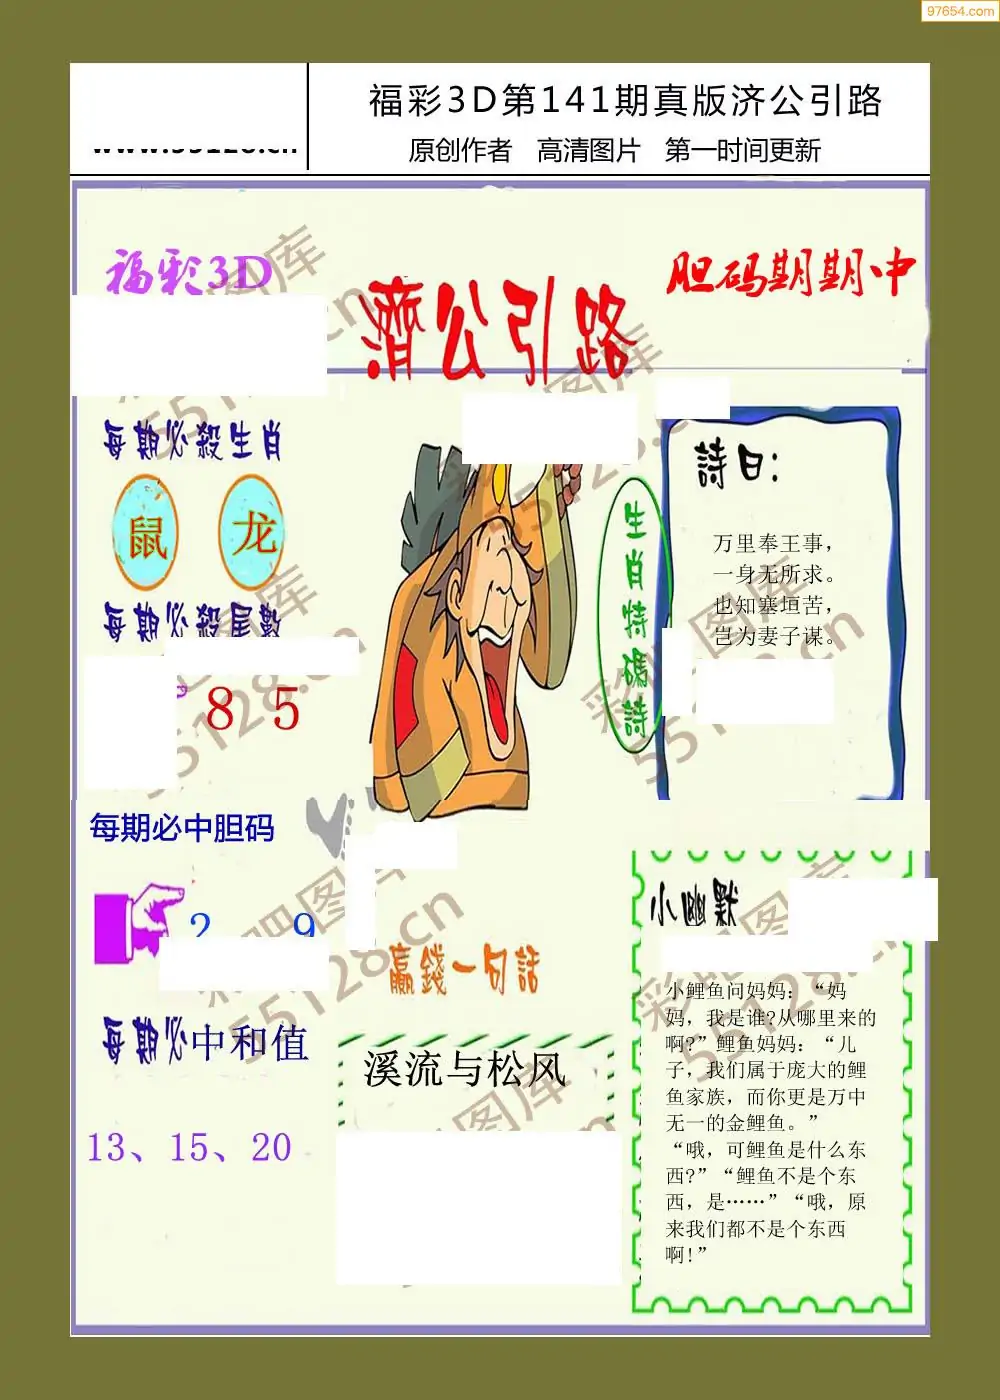 97654.com
福彩3D第141期真版济公引路
原创作者 高清图片 第一时间更新
www.55128.cn
福彩3D
濟公引路
胆码期期中
每期必殺生肖
鼠 龙
每期必殺尾數
8 5
生肖特碼詩
詩曰:
万里奉王事，
一身无所求。
也知塞垣苦，
岂为妻子谋。
每期必中胆码
2 9
每期必中和值
13、15、20
贏錢一句話
溪流与松风
小幽默
小鲤鱼问妈妈：“妈
妈，我是谁?从哪里来的
啊?”鲤鱼妈妈：“儿
子，我们属于庞大的鲤
鱼家族，而你更是万中
无一的金鲤鱼。”
“哦，可鲤鱼是什么东
西?”“鲤鱼不是个东
西，是……”“哦，原
来我们都不是个东西
啊!”
彩吧图库
55128.cn